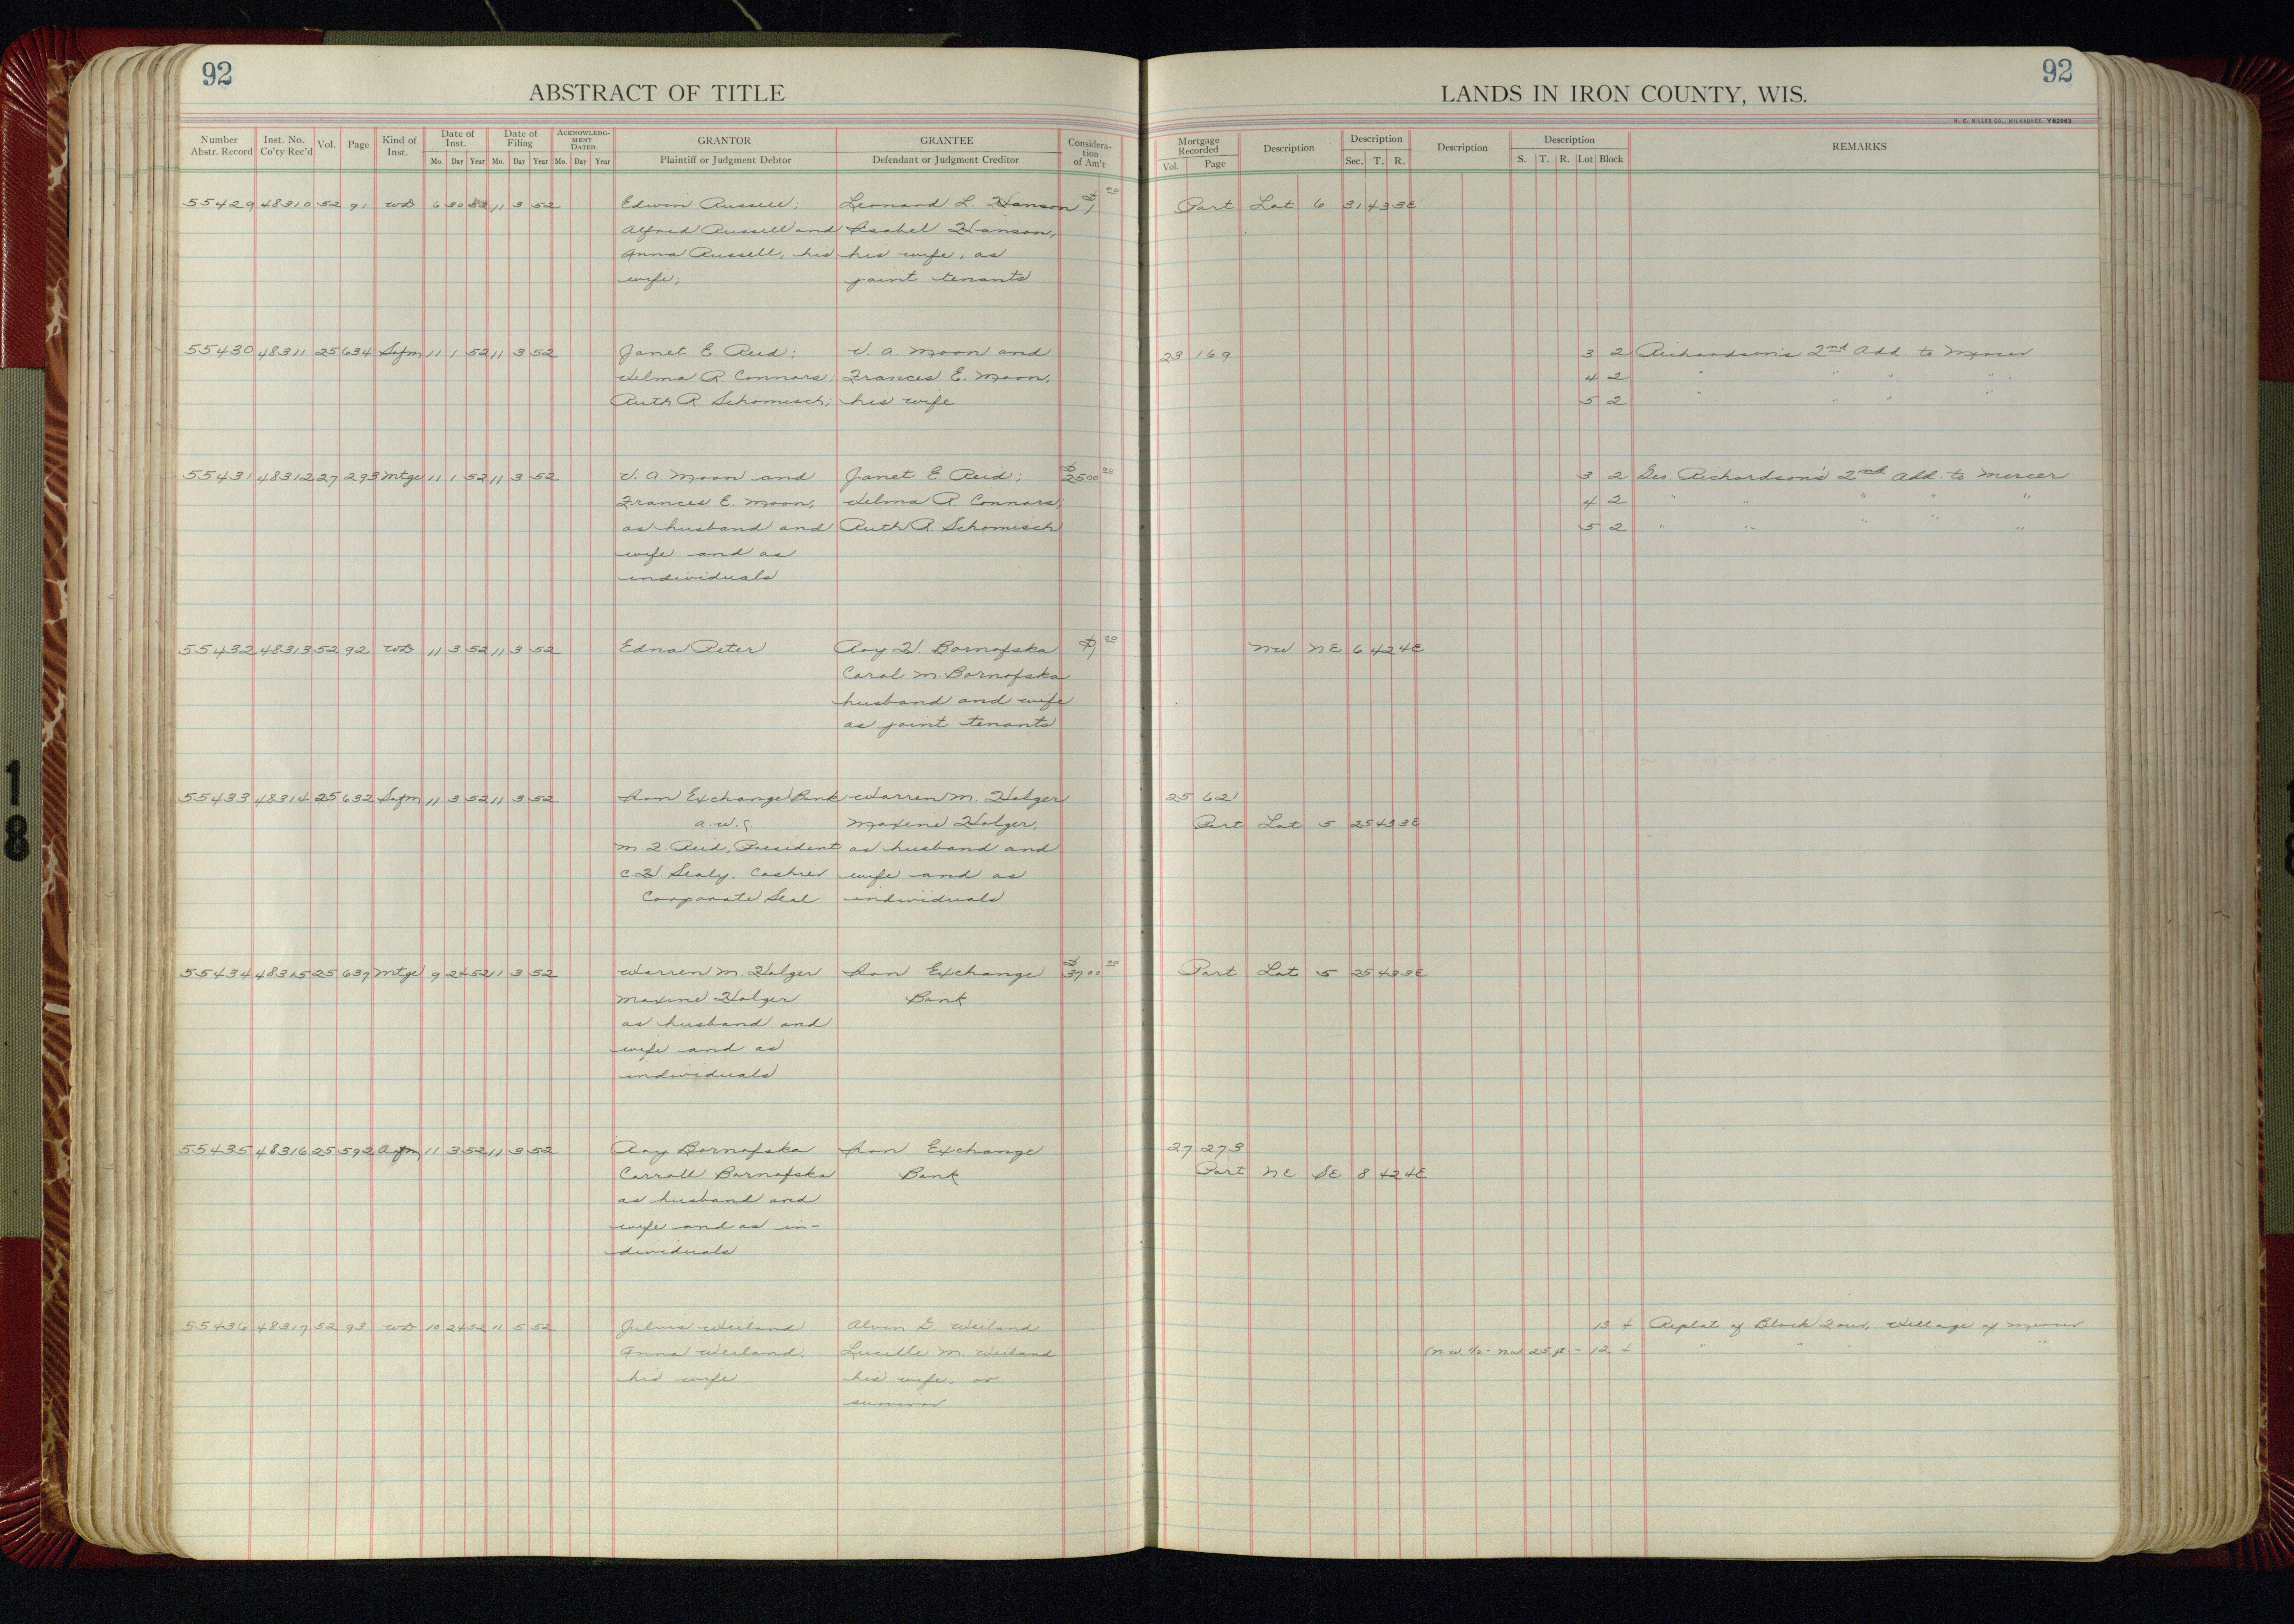 92
ABSTRACT OF TITLE
LANDS IN IRON COUNTY, WIS.
92
H. C. MILLER CO., MILWAUKEE Y82963
Number Abstr. Record Inst. No. Co'ty Rec'd Vol. Page Kind of Inst. Date of Inst. Mo. Day Year Date of Filing Mo. Day Year ACKNOWLEDGMENT DATED Mo. Day Year GRANTOR Plaintiff or Judgment Debtor GRANTEE Defendant or Judgment Creditor Consideration of Am't
Mortgage Recorded Vol. Page Description Description Sec. T. R. Description Description S. T. R. Lot Block REMARKS
55429 48310 52 91 WD 6 30 52 11 3 52 Edwin Russell; Leonard L. Hanson $1 00 Part Lot 6 31 43 3E
Alfred Russell and Isabel Hanson,
Anna Russell, his his wife, as
wife; joint tenants
55430 48311 25 634 Safm 11 1 52 11 3 52 Janet E. Reid; V. A. Moon and 23 169 3 2 Richardson's 2nd Add. to Mercer
Velma R Connors; Frances E. Moon, 4 2 " " " "
Ruth R Schomisch; his wife 5 2 " " " "
55431 48312 27 293 Mtge 11 1 52 11 3 52 V. A. Moon and Janet E Reid; $2500 00 3 2 Geo. Richardson's 2nd Add. to Mercer
Frances E. Moon, Velma R. Connors, 4 2 " " " " "
as husband and Ruth R. Schomisch 5 2 " " " " "
wife and as
individuals
55432 48313 52 92 WD 11 3 52 11 3 52 Edna Peter Roy H Bornofska $1 00 NW NE 6 42 4E
Carol M. Bornofska
husband and wife
as joint tenants
55433 48314 25 632 Safm 11 3 52 11 3 52 Iron Exchange Bank Warren M. Holger 25 621
Maxine Holger, Part Lot 5 25 43 3E
M. J. Reid, President as husband and
C. H. Sealy, Cashier wife and as
Corporate Seal individuals
55434 48315 25 637 Mtge 9 24 52 11 3 52 Warren M. Holger Iron Exchange $3700 00 Part Lot 5 25 43 3E
Maxine Holger Bank
as husband and
wife and as
individuals
55435 48316 25 592 Agm 11 3 52 11 3 52 Roy Bornofska Iron Exchange 27 273
Carroll Bornofska Bank Part NE SE 8 42 4E
as husband and
wife and as in-
dividuals
55436 48317 52 93 WD 10 24 52 11 5 52 Julius Weiland Alvin G. Weiland 13 4 Replat of Block Four, Village of Mercer
Anna Weiland, Lucille M. Weiland (N.W. 1/2 - NW 25 ft - 12 4 " " " "
his wife his wife, or
survivor
18